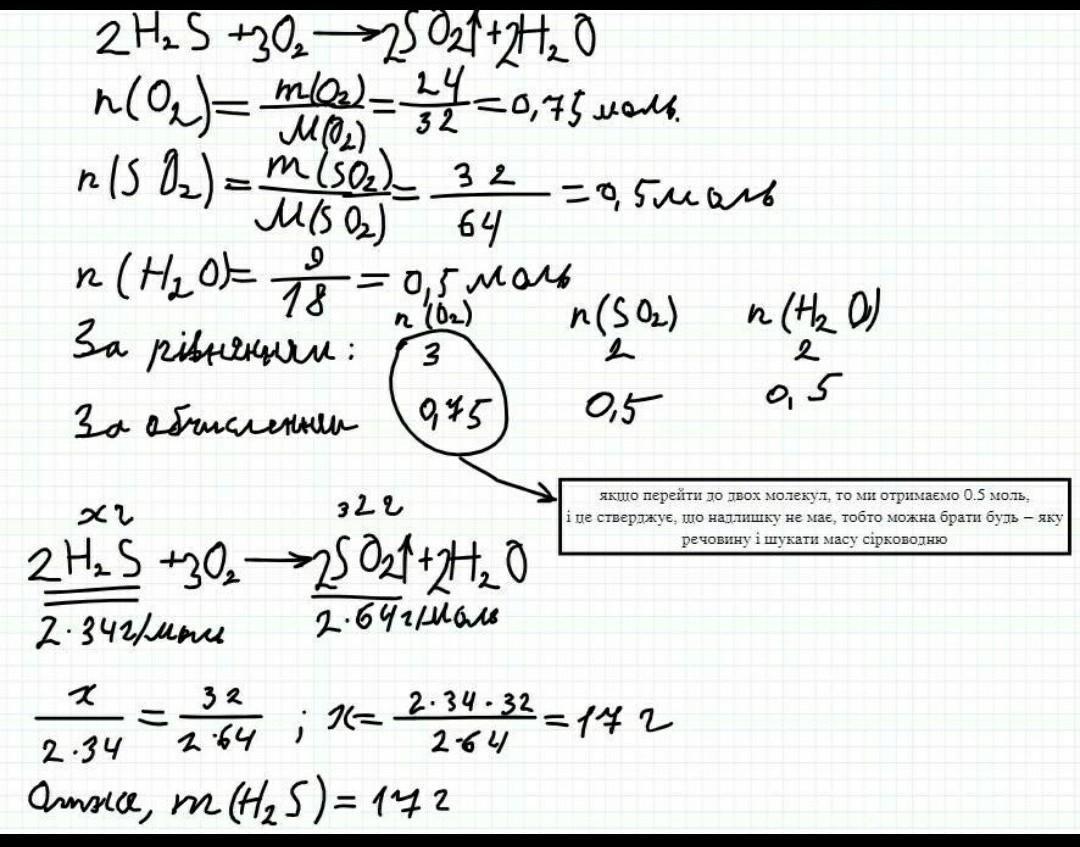 2H₂S + 3O₂ → 2SO₂↑ + 2H₂O
n(O₂) = m(O₂)/M(O₂) = 24/32 = 0,75 моль.
n(SO₂) = m(SO₂)/M(SO₂) = 32/64 = 0,5 моль
n(H₂O) = 9/18 = 0,5 моль
n(O₂) n(SO₂) n(H₂O)
За рівнянням: 3 2 2
За обчисленням 0,75 0,5 0,5
якщо перейти до двох молекул, то ми отримаємо 0.5 моль,
і це стверджує, що надлишку не має, тобто можна брати будь – яку
речовину і шукати масу сірководню
x г 32 г
2H₂S + 3O₂ → 2SO₂↑ + 2H₂O
2·34 г/моль 2·64 г/моль
x/2·34 = 32/2·64 ; x = 2·34·32/2·64 = 17 г
Отже, m(H₂S) = 17 г